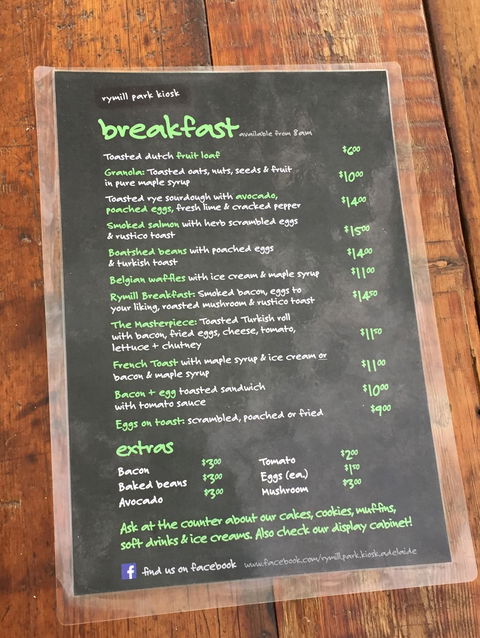 rymill park kiosk
breakfast available from 8am
Toasted dutch fruit loaf $600
Granola: Toasted oats, nuts, seeds & fruit
in pure maple syrup $1000
Toasted rye sourdough with avocado,
poached eggs, fresh lime & cracked pepper $1400
Smoked salmon with herb scrambled eggs
& rustico toast $1500
Boatshed beans with poached eggs
& turkish toast $1400
Belgian waffles with ice cream & maple syrup $1100
Rymill Breakfast: Smoked bacon, eggs to
your liking, roasted mushroom & rustico toast $1450
The Masterpiece: Toasted Turkish roll
with bacon, fried eggs, cheese, tomato,
lettuce + chutney $1150
French Toast with maple syrup & ice cream or
bacon & maple syrup $1100
Bacon + egg toasted sandwich
with tomato sauce $1000
Eggs on toast: scrambled, poached or fried $900
extras
Bacon $300 Tomato $200
Baked beans $300 Eggs (ea.) $150
Avocado $300 Mushroom $300
Ask at the counter about our cakes, cookies, muffins,
soft drinks & ice creams. Also check our display cabinet!
f find us on facebook www.facebook.com/rymill.park.kiosk.adelaide